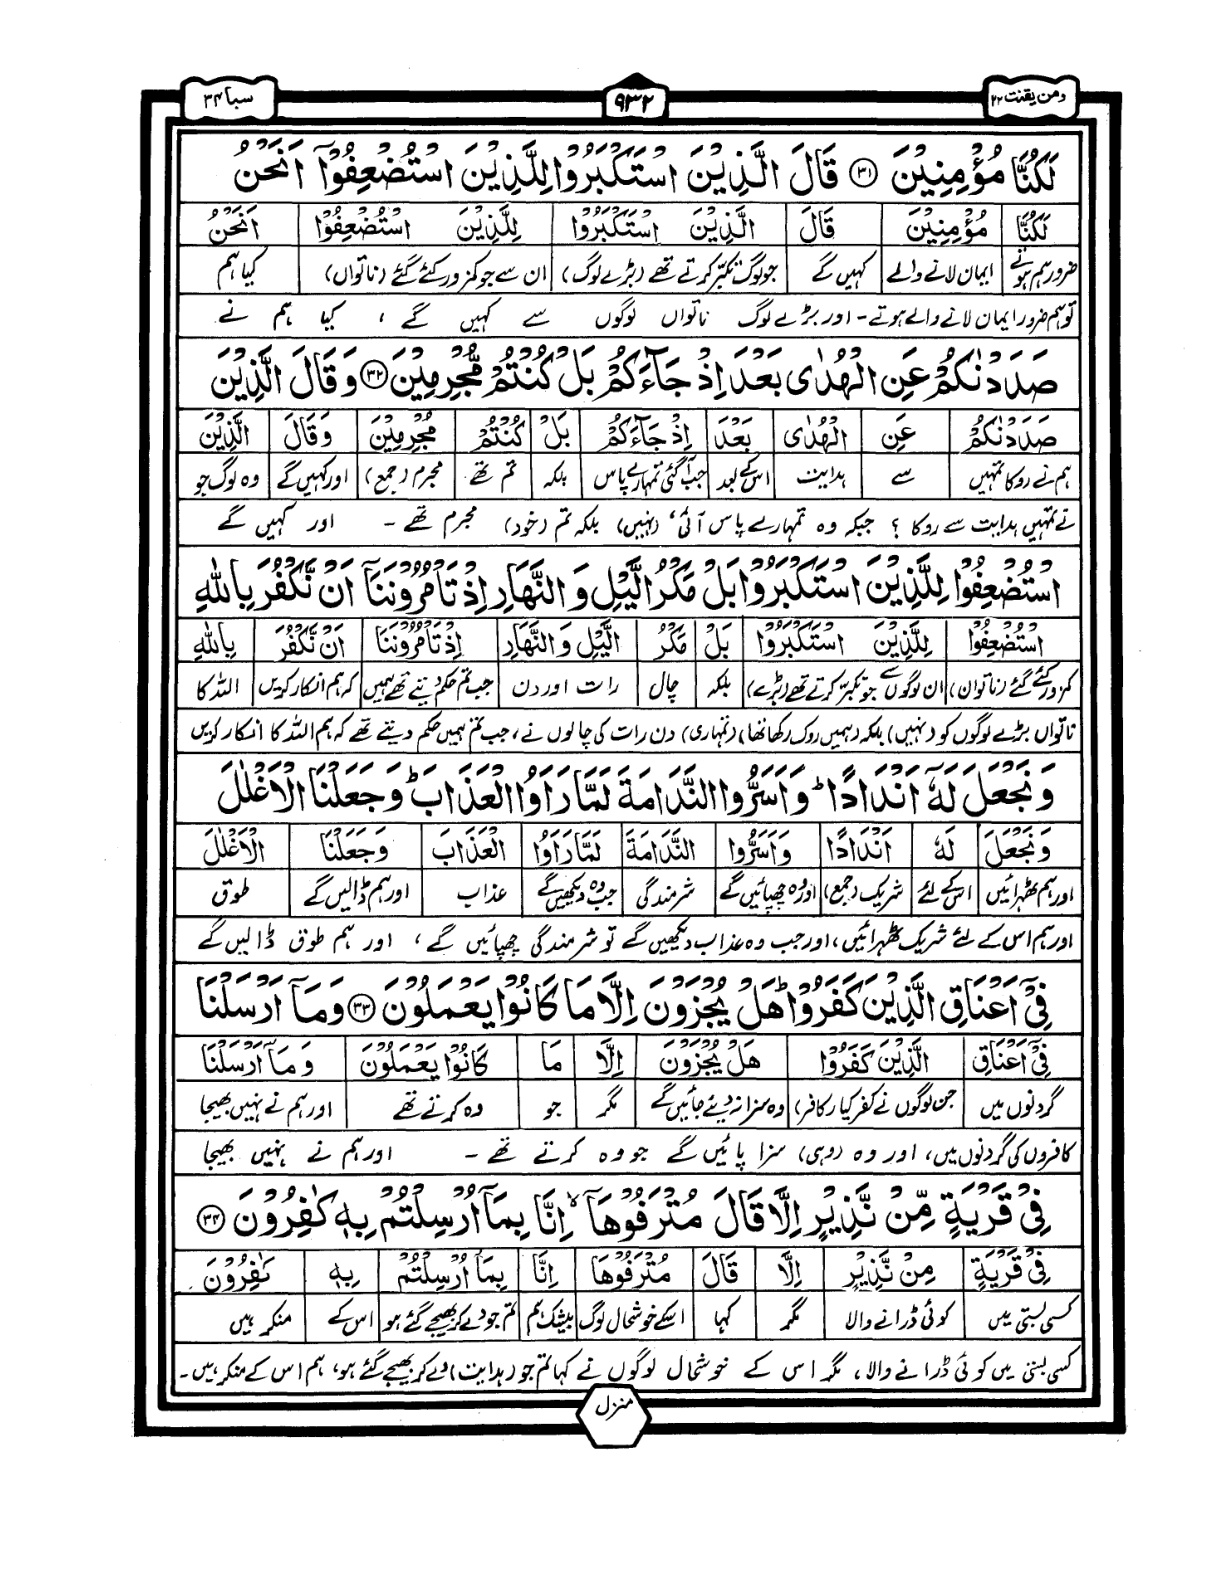 ومن یقنت ۲۲
۹۳۲
سبا ۳۴
لَكُنَّا مُؤْمِنِیْنَ ۝۳۱ قَالَ الَّذِیْنَ اسْتَكْبَرُوْا لِلَّذِیْنَ اسْتُضْعِفُوْۤا اَنَحْنُ
لَكُنَّا مُؤْمِنِیْنَ قَالَ الَّذِیْنَ اسْتَكْبَرُوْا لِلَّذِیْنَ اسْتُضْعِفُوْۤا اَنَحْنُ
ضرور ہم ہوتے ایمان لانے والے کہیں گے جو لوگ تکبر کرتے تھے (بڑے لوگ) ان سے جو کمزور کئے گئے (ناتواں) کیا ہم
تو ہم ضرور ایمان لانے والے ہوتے۔ اور بڑے لوگ ناتواں لوگوں سے کہیں گے، کیا ہم نے
صَدَدْنٰكُمْ عَنِ الْهُدٰى بَعْدَ اِذْ جَآءَكُمْ بَلْ كُنْتُمْ مُّجْرِمِیْنَ ۝۳۲ وَقَالَ الَّذِیْنَ
صَدَدْنٰكُمْ عَنِ الْهُدٰى بَعْدَ اِذْ جَآءَكُمْ بَلْ كُنْتُمْ مُجْرِمِیْنَ وَقَالَ الَّذِیْنَ
ہم نے روکا تمہیں سے ہدایت اس کے بعد جب آگئی تمہارے پاس بلکہ تم تھے مجرم (جمع) اور کہیں گے وہ لوگ جو
نے تمہیں ہدایت سے روکا؟ جبکہ وہ تمہارے پاس آئی، (نہیں) بلکہ تم (خود) مجرم تھے۔ اور کہیں گے
اسْتُضْعِفُوْا لِلَّذِیْنَ اسْتَكْبَرُوْا بَلْ مَكْرُ الَّیْلِ وَ النَّهَارِ اِذْ تَاْمُرُوْنَنَاۤ اَنْ نَّكْفُرَ بِاللّٰهِ
اسْتُضْعِفُوْا لِلَّذِیْنَ اسْتَكْبَرُوْا بَلْ مَكْرُ الَّیْلِ وَ النَّهَارِ اِذْ تَاْمُرُوْنَنَا اَنْ نَّكْفُرَ بِاللّٰهِ
کمزور کئے گئے (ناتواں) ان لوگوں سے جو تکبر کرتے تھے (بڑے) بلکہ چال رات اور دن جب تم حکم دیتے تھے ہمیں کہ ہم انکار کریں اللہ کا
ناتواں بڑے لوگوں کو (نہیں) بلکہ (ہمیں روک رکھا تھا) (تمہاری) دن رات کی چالوں نے، جب تم ہمیں حکم دیتے تھے کہ ہم اللہ کا انکار کریں
وَ نَجْعَلَ لَهٗۤ اَنْدَادًا ؕ وَ اَسَرُّوا النَّدَامَةَ لَمَّا رَاَوُا الْعَذَابَ ؕ وَ جَعَلْنَا الْاَغْلٰلَ
وَ نَجْعَلَ لَهٗ اَنْدَادًا وَ اَسَرُّوا النَّدَامَةَ لَمَّا رَاَوُا الْعَذَابَ وَ جَعَلْنَا الْاَغْلٰلَ
اور ہم ٹھہرائیں اس کے لئے شریک (جمع) اور وہ چھپائیں گے شرمندگی جب وہ دیکھیں گے عذاب اور ہم ڈالیں گے طوق
اور ہم اس کے لئے شریک ٹھہرائیں، اور جب وہ عذاب دیکھیں گے تو شرمندگی چھپائیں گے، اور ہم طوق ڈالیں گے
فِیْۤ اَعْنَاقِ الَّذِیْنَ كَفَرُوْا ؕ هَلْ یُجْزَوْنَ اِلَّا مَا كَانُوْا یَعْمَلُوْنَ ۝۳۳ وَ مَاۤ اَرْسَلْنَا
فِیْۤ اَعْنَاقِ الَّذِیْنَ كَفَرُوْا هَلْ یُجْزَوْنَ اِلَّا مَا كَانُوْا یَعْمَلُوْنَ وَ مَاۤ اَرْسَلْنَا
گردنوں میں جن لوگوں نے کفر کیا (کافر) وہ سزا نہ دیئے جائیں گے مگر جو وہ کرتے تھے اور ہم نے نہیں بھیجا
کافروں کی گردنوں میں، اور وہ (وہی) سزا پائیں گے جو وہ کرتے تھے۔ اور ہم نے نہیں بھیجا
فِیْ قَرْیَةٍ مِّنْ نَّذِیْرٍ اِلَّا قَالَ مُتْرَفُوْهَاۤ ۙ اِنَّا بِمَاۤ اُرْسِلْتُمْ بِهٖ كٰفِرُوْنَ ۝۳۴
فِیْ قَرْیَةٍ مِنْ نَّذِیْرٍ اِلَّا قَالَ مُتْرَفُوْهَا اِنَّا بِمَاۤ اُرْسِلْتُمْ بِهٖ كٰفِرُوْنَ
کسی بستی میں کوئی ڈرانے والا مگر کہا اسکے خوشحال لوگ بیشک ہم تم جو دے کر بھیجے گئے ہو اس کے منکر ہیں
کسی بستی میں کوئی ڈرانے والا، مگر اس کے خوشحال لوگوں نے کہا تم جو (ہدایت) دے کر بھیجے گئے ہو، ہم اس کے منکر ہیں۔
منزل